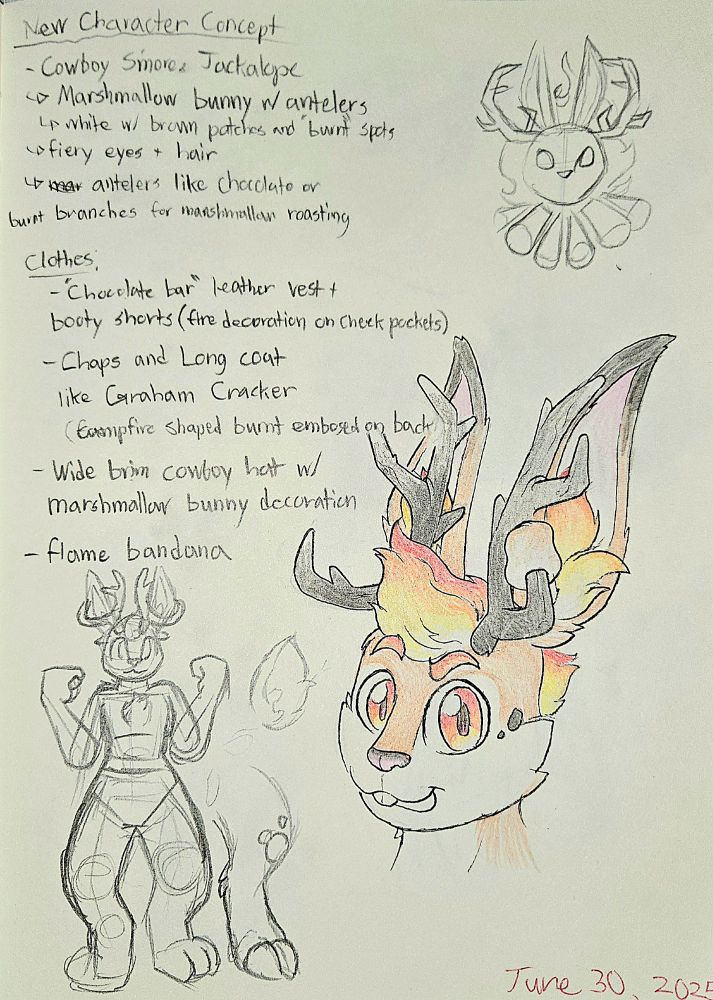 New Character Concept
- Cowboy S'mores Jackalope
↳ Marshmallow bunny w/ antelers
↳ white w/ brown patches and "burnt" spots
↳ fiery eyes + hair
↳ antelers like chocolate or
burnt branches for marshmallow roasting
Clothes:
- "Chocolate bar" leather vest +
booty shorts (fire decoration on cheek pockets)
- Chaps and Long coat
like Graham Cracker
(Campfire shaped burnt embosed on back)
- Wide brim cowboy hat w/
marshmallow bunny decoration
- flame bandana
June 30, 2025